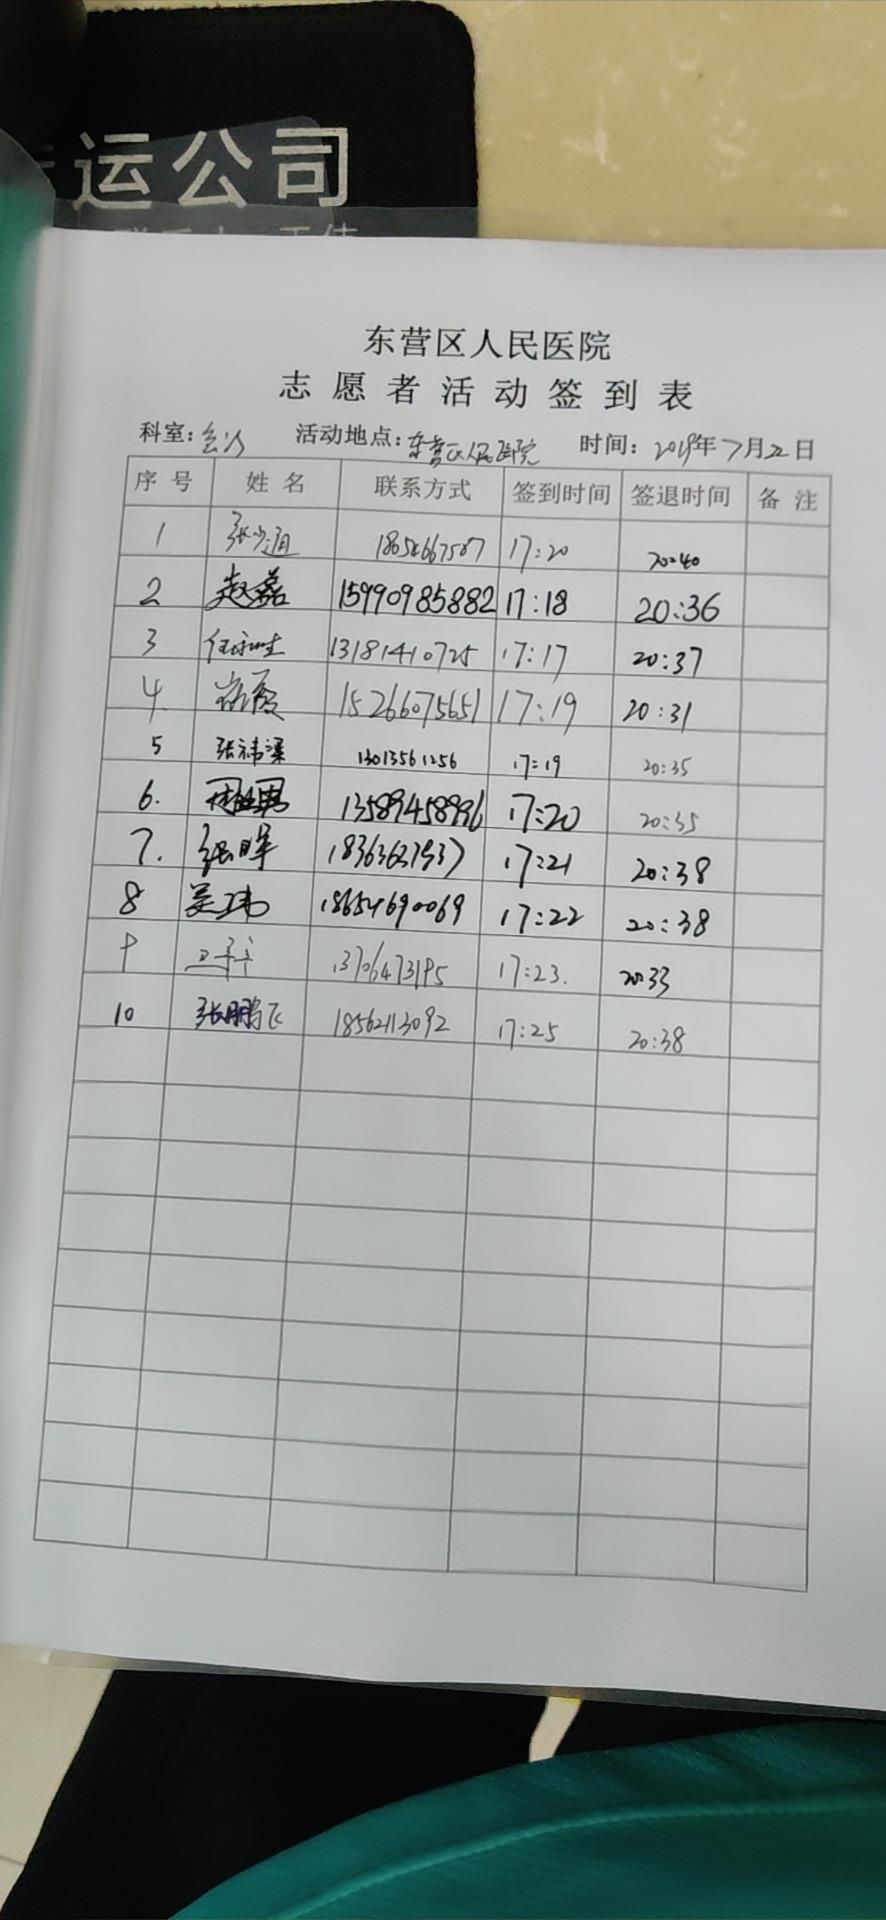 运公司
东营区人民医院
志愿者活动签到表
科室: 活动地点:东营区人民医院 时间: 2019年7月22日
序号 姓名 联系方式 签到时间 签退时间 备注
1 17:20 20:40
2 赵磊 15990985882 17:18 20:36
3 13181410725 17:17 20:37
4. 15266075651 17:19 20:31
5 张祎深 13013561256 17:19 20:35
6. 13589458996 17:20 20:35
7. 张晖 17:21 20:38
8 吴玮 18654690069 17:22 20:38
9 13706473195 17:23. 20:33
10 张鹏飞 18562113092 17:25 20:38